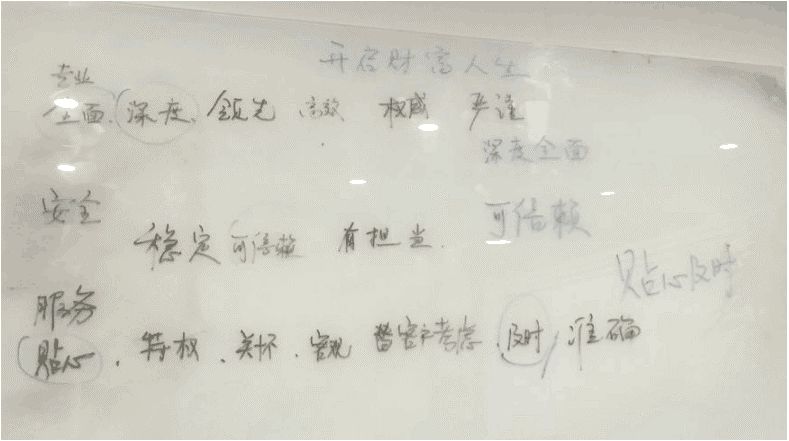 开启财富人生
专业
全面、深度、领先 高效 权威 严谨
深度全面
安全
可信赖
稳定 可信赖 有担当.
贴心及时
服务
贴心、特权、关怀、客观 替客户考虑、及时/准确